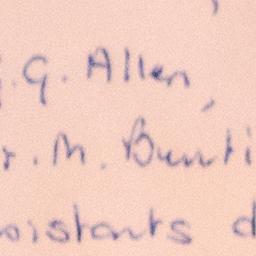 G. Allen,
r. M. Bunti
sistants d